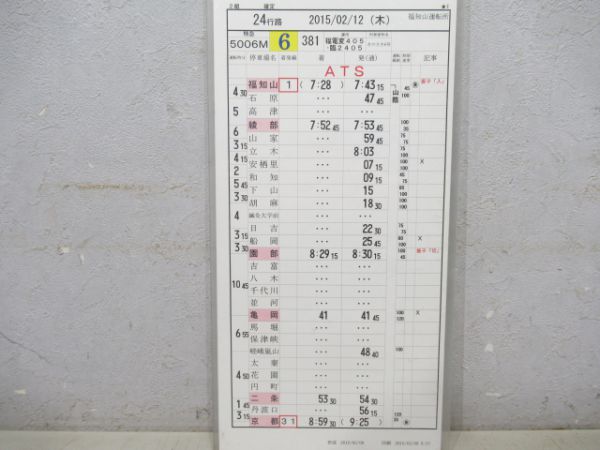 24行路 2015/02/12 (木) 福知山運転所
特急 5006M 6 381 福電変405 ・臨2405
運転時分 停車場名 着発線 着 発(通) 記事
ATS
福知山 1 (7:28) 7:43 15 山陰
4 30 石原 ... 47 45
5 高津 ... ...
綾部 7:52 45 7:53 45
6 山家 ... 59 45
3 15 立木 ... 8:03
4 15 安栖里 ... 07 15 X
2 和知 ... 09 15
5 45 下山 ... 15
3 30 胡麻 ... 18 30
4 鍼灸大学前 ... ...
日吉 ... 22 30
3 15 船岡 ... 25 45 X
3 30 園部 8:29 15 8:30 15
吉富 ... ...
八木 ... ...
10 45 千代川 ... ...
並河 ... ...
亀岡 41 41 45 X
馬堀 ... ...
6 55 保津峡 ... ...
嵯峨嵐山 ... 48 40 100
太秦 ... ...
4 50 花園 ... ...
円町 ... ...
二条 53 30 54 30
1 45 丹波口 ... 56 15
3 15 京都 31 8:59 30 (9:25)